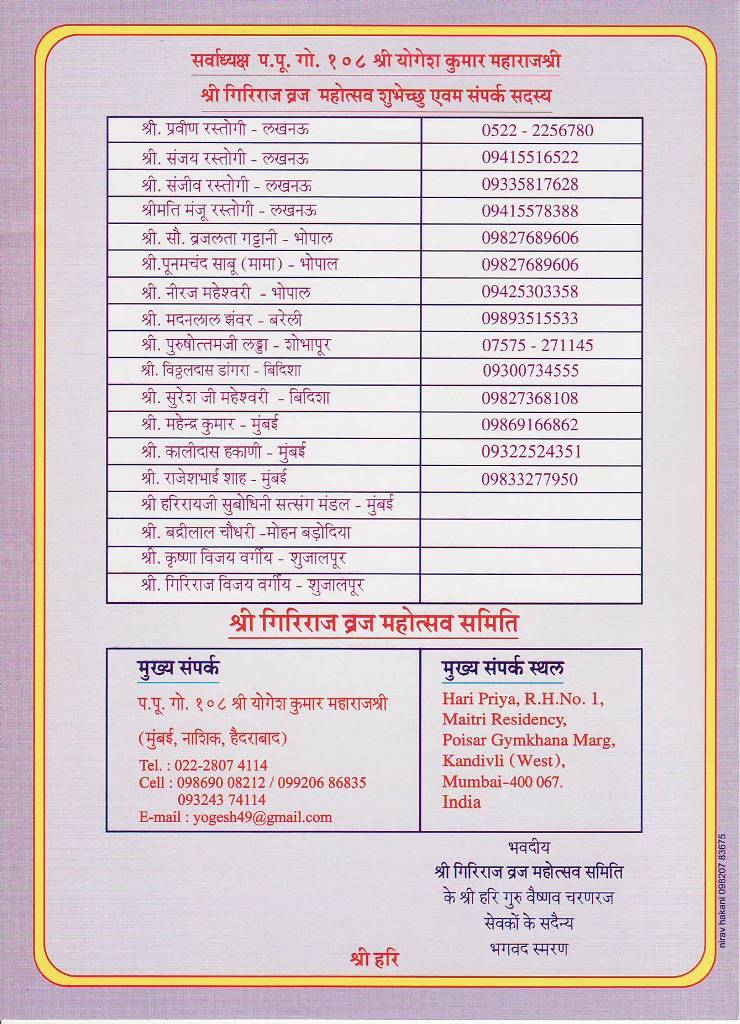 सर्वाध्यक्ष प.पू. गो. १०८ श्री योगेश कुमार महाराजश्री
श्री गिरिराज व्रज महोत्सव शुभेच्छु एवम संपर्क सदस्य
श्री. प्रवीण रस्तोगी - लखनऊ 0522 - 2256780
श्री. संजय रस्तोगी - लखनऊ 09415516522
श्री. संजीव रस्तोगी - लखनऊ 09335817628
श्रीमति मंजू रस्तोगी - लखनऊ 09415578388
श्री. सौ. व्रजलता गट्टानी - भोपाल 09827689606
श्री.पूनमचंद साबू (मामा) - भोपाल 09827689606
श्री. नीरज महेश्वरी - भोपाल 09425303358
श्री. मदनलाल झंवर - बरेली 09893515533
श्री. पुरुषोत्तमजी लड्डा - शोभापूर 07575 - 271145
श्री. विठ्ठलदास डांगरा - बिदिशा 09300734555
श्री. सुरेश जी महेश्वरी - बिदिशा 09827368108
श्री. महेन्द्र कुमार - मुंबई 09869166862
श्री. कालीदास हकाणी - मुंबई 09322524351
श्री. राजेशभाई शाह - मुंबई 09833277950
श्री हरिरायजी सुबोधिनी सत्संग मंडल - मुंबई
श्री. बद्रीलाल चौधरी -मोहन बड़ोदिया
श्री. कृष्णा विजय वर्गीय - शुजालपूर
श्री. गिरिराज विजय वर्गीय - शुजालपूर
श्री गिरिराज व्रज महोत्सव समिति
मुख्य संपर्क
प.पू. गो. १०८ श्री योगेश कुमार महाराजश्री
(मुंबई, नाशिक, हैदराबाद)
Tel. : 022-2807 4114
Cell : 098690 08212 / 099206 86835
093243 74114
E-mail : yogesh49@gmail.com
मुख्य संपर्क स्थल
Hari Priya, R.H.No. 1,
Maitri Residency,
Poisar Gymkhana Marg,
Kandivli (West),
Mumbai-400 067.
India
भवदीय
श्री गिरिराज व्रज महोत्सव समिति
के श्री हरि गुरु वैष्णव चरणरज
सेवकों के सदैन्य
भगवद स्मरण
श्री हरि
nirav hakani 098207 83675